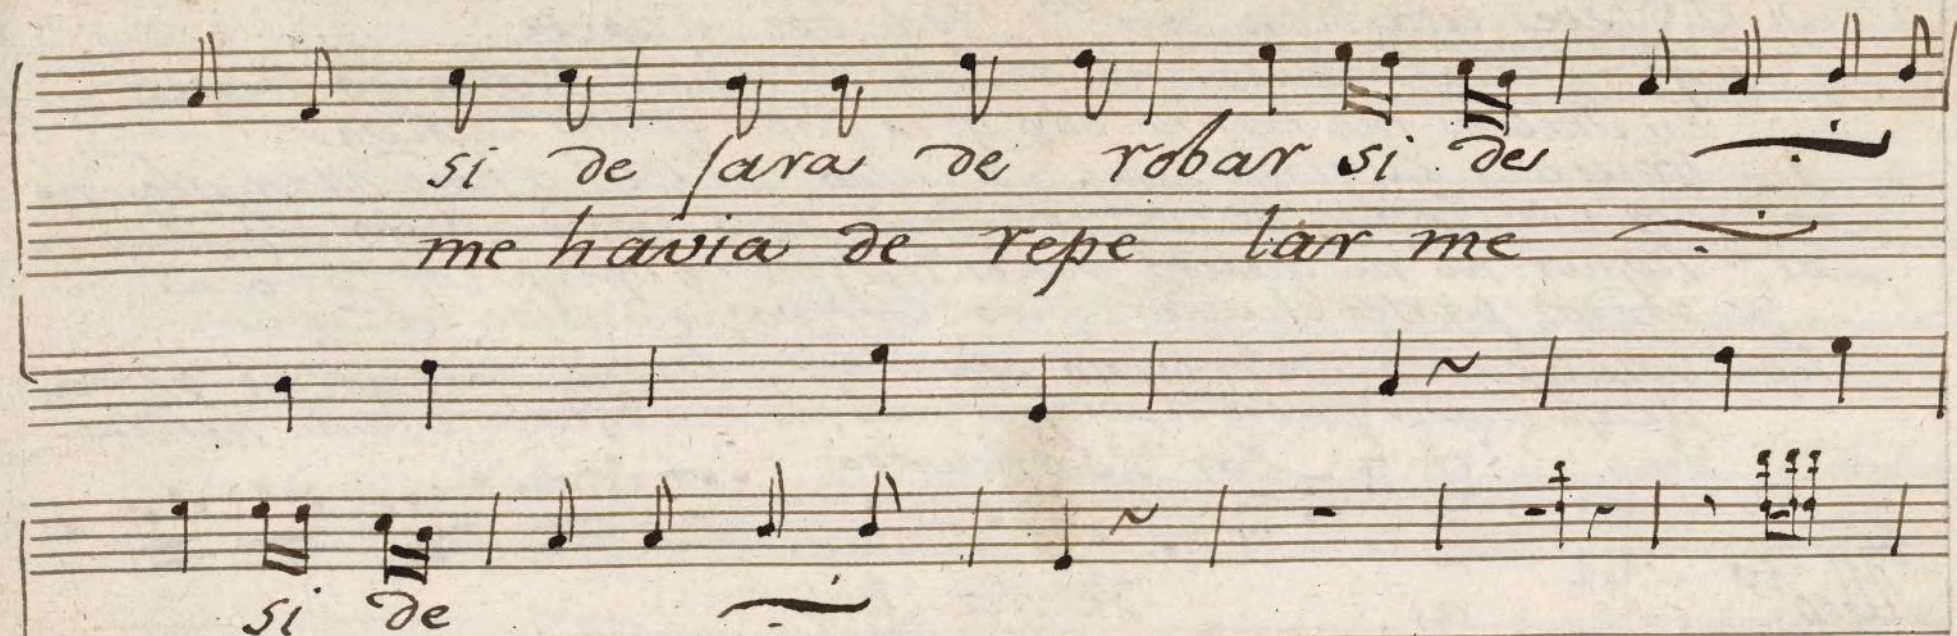 si de jara de robar si de
me havia de repe lar me
si de